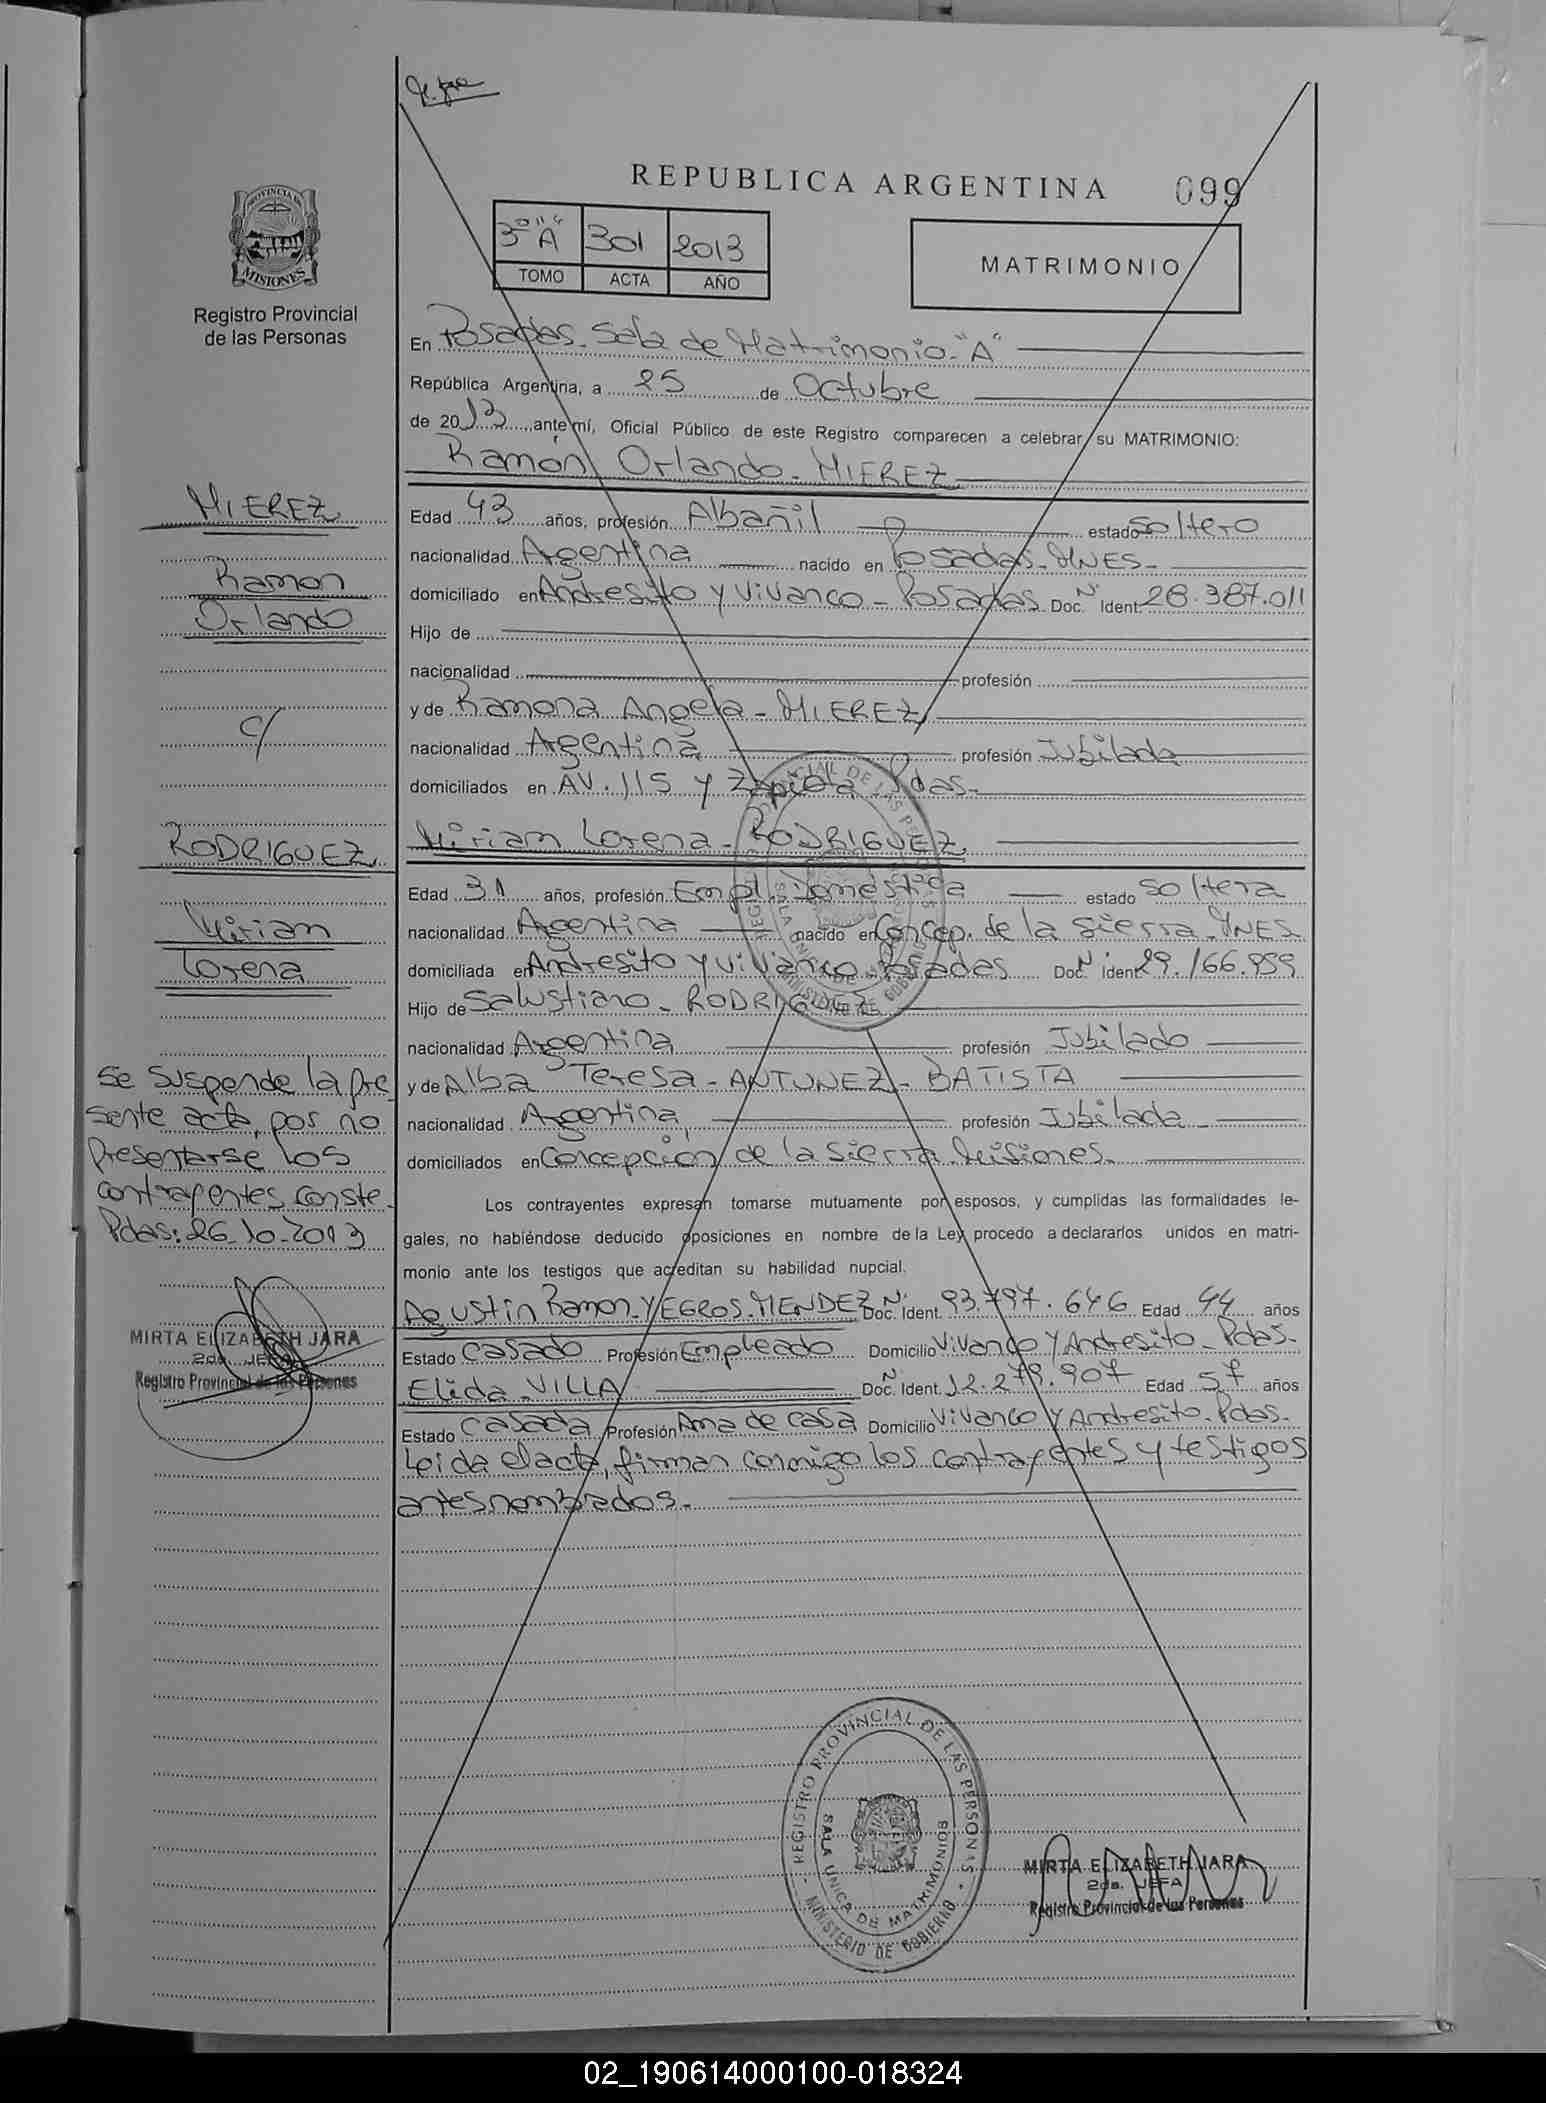 REPUBLICA ARGENTINA 099
PROVINCIA DE
MISIONES
Registro Provincial
de las Personas
3º "A" 301 2013
TOMO ACTA AÑO
MATRIMONIO
En Posadas. Sala de Matrimonio. "A"
República Argentina, a 25 de Octubre
de 2013 ante mí, Oficial Público de este Registro comparecen a celebrar su MATRIMONIO:
Ramón Orlando - MIEREZ
Edad 43 años, profesión Albañil estado soltero
nacionalidad Argentina nacido en Posadas - MNES -
domiciliado en Andresito y Vivanco - Posadas Doc. Nº Ident. 28.387.011
Hijo de
nacionalidad profesión
y de Ramona Angela - MIEREZ
nacionalidad Argentina profesión Jubilada
domiciliados en AV. 115 y Zapiola Pdas.
Miriam Lorena - RODRIGUEZ
Edad 31 años, profesión Empl. Doméstica estado soltera
nacionalidad Argentina nacido en Concep. de la Sierra - MNES
domiciliada en Andresito y Vivanco Posadas Doc. N Ident. 29.166.959
Hijo de Salustiano - RODRIGUEZ
nacionalidad Argentina profesión Jubilado
y de Alba Teresa - ANTUNEZ - BATISTA
nacionalidad Argentina profesión Jubilada
domiciliados en Concepción de la Sierra. Misiones.
Los contrayentes expresan tomarse mutuamente por esposos, y cumplidas las formalidades le-
gales, no habiéndose deducido oposiciones en nombre de la Ley procedo a declararlos unidos en matri-
monio ante los testigos que acreditan su habilidad nupcial.
Agustin Ramon - YEGROS - MENDEZ Doc. Nº Ident. 93.797.646 Edad 44 años
Estado Casado Profesión Empleado Domicilio Vivanco y Andresito - Pdas.
Elida - VILLA Doc. Nº Ident. 12.279.907 Edad 57 años
Estado Casada Profesión Ama de casa Domicilio Vivanco y Andresito - Pdas.
Leida el acta, firman conmigo los contrayentes y testigos
antes nombrados.-
MIEREZ
Ramon
Orlando
c/
RODRIGUEZ
Miriam
Lorena
Se suspende la pre
sente acta, por no
presentarse los
contrayentes conste.
Pdas: 26-10-2013
MIRTA ELIZABETH JARA
2da. JEFA
Registro Provincial de las Personas
REGISTRO PROVINCIAL DE LAS PERSONAS
SALA UNICA DE MATRIMONIOS
MINISTERIO DE GOBIERNO
REGISTRO PROVINCIAL DE LAS PERSONAS
SALA UNICA DE MATRIMONIOS
MINISTERIO DE GOBIERNO
MIRTA ELIZABETH JARA
2da. JEFA
Registro Provincial de las Personas
02_190614000100-018324